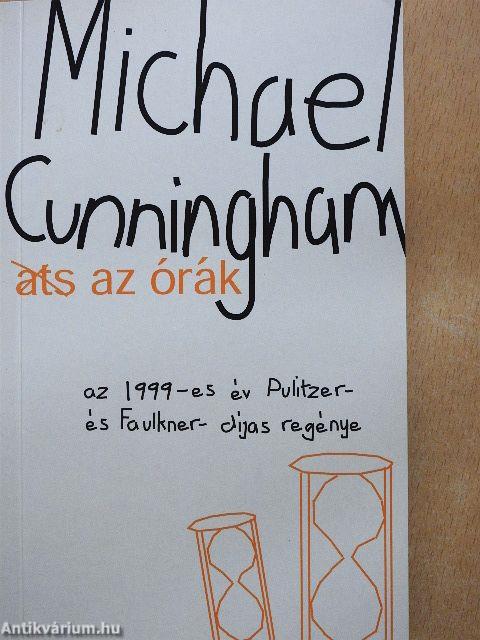 Michael
Cunningham
ats az órák
az 1999-es év Pulitzer-
és Faulkner- díjas regénye
Antikvárium.hu